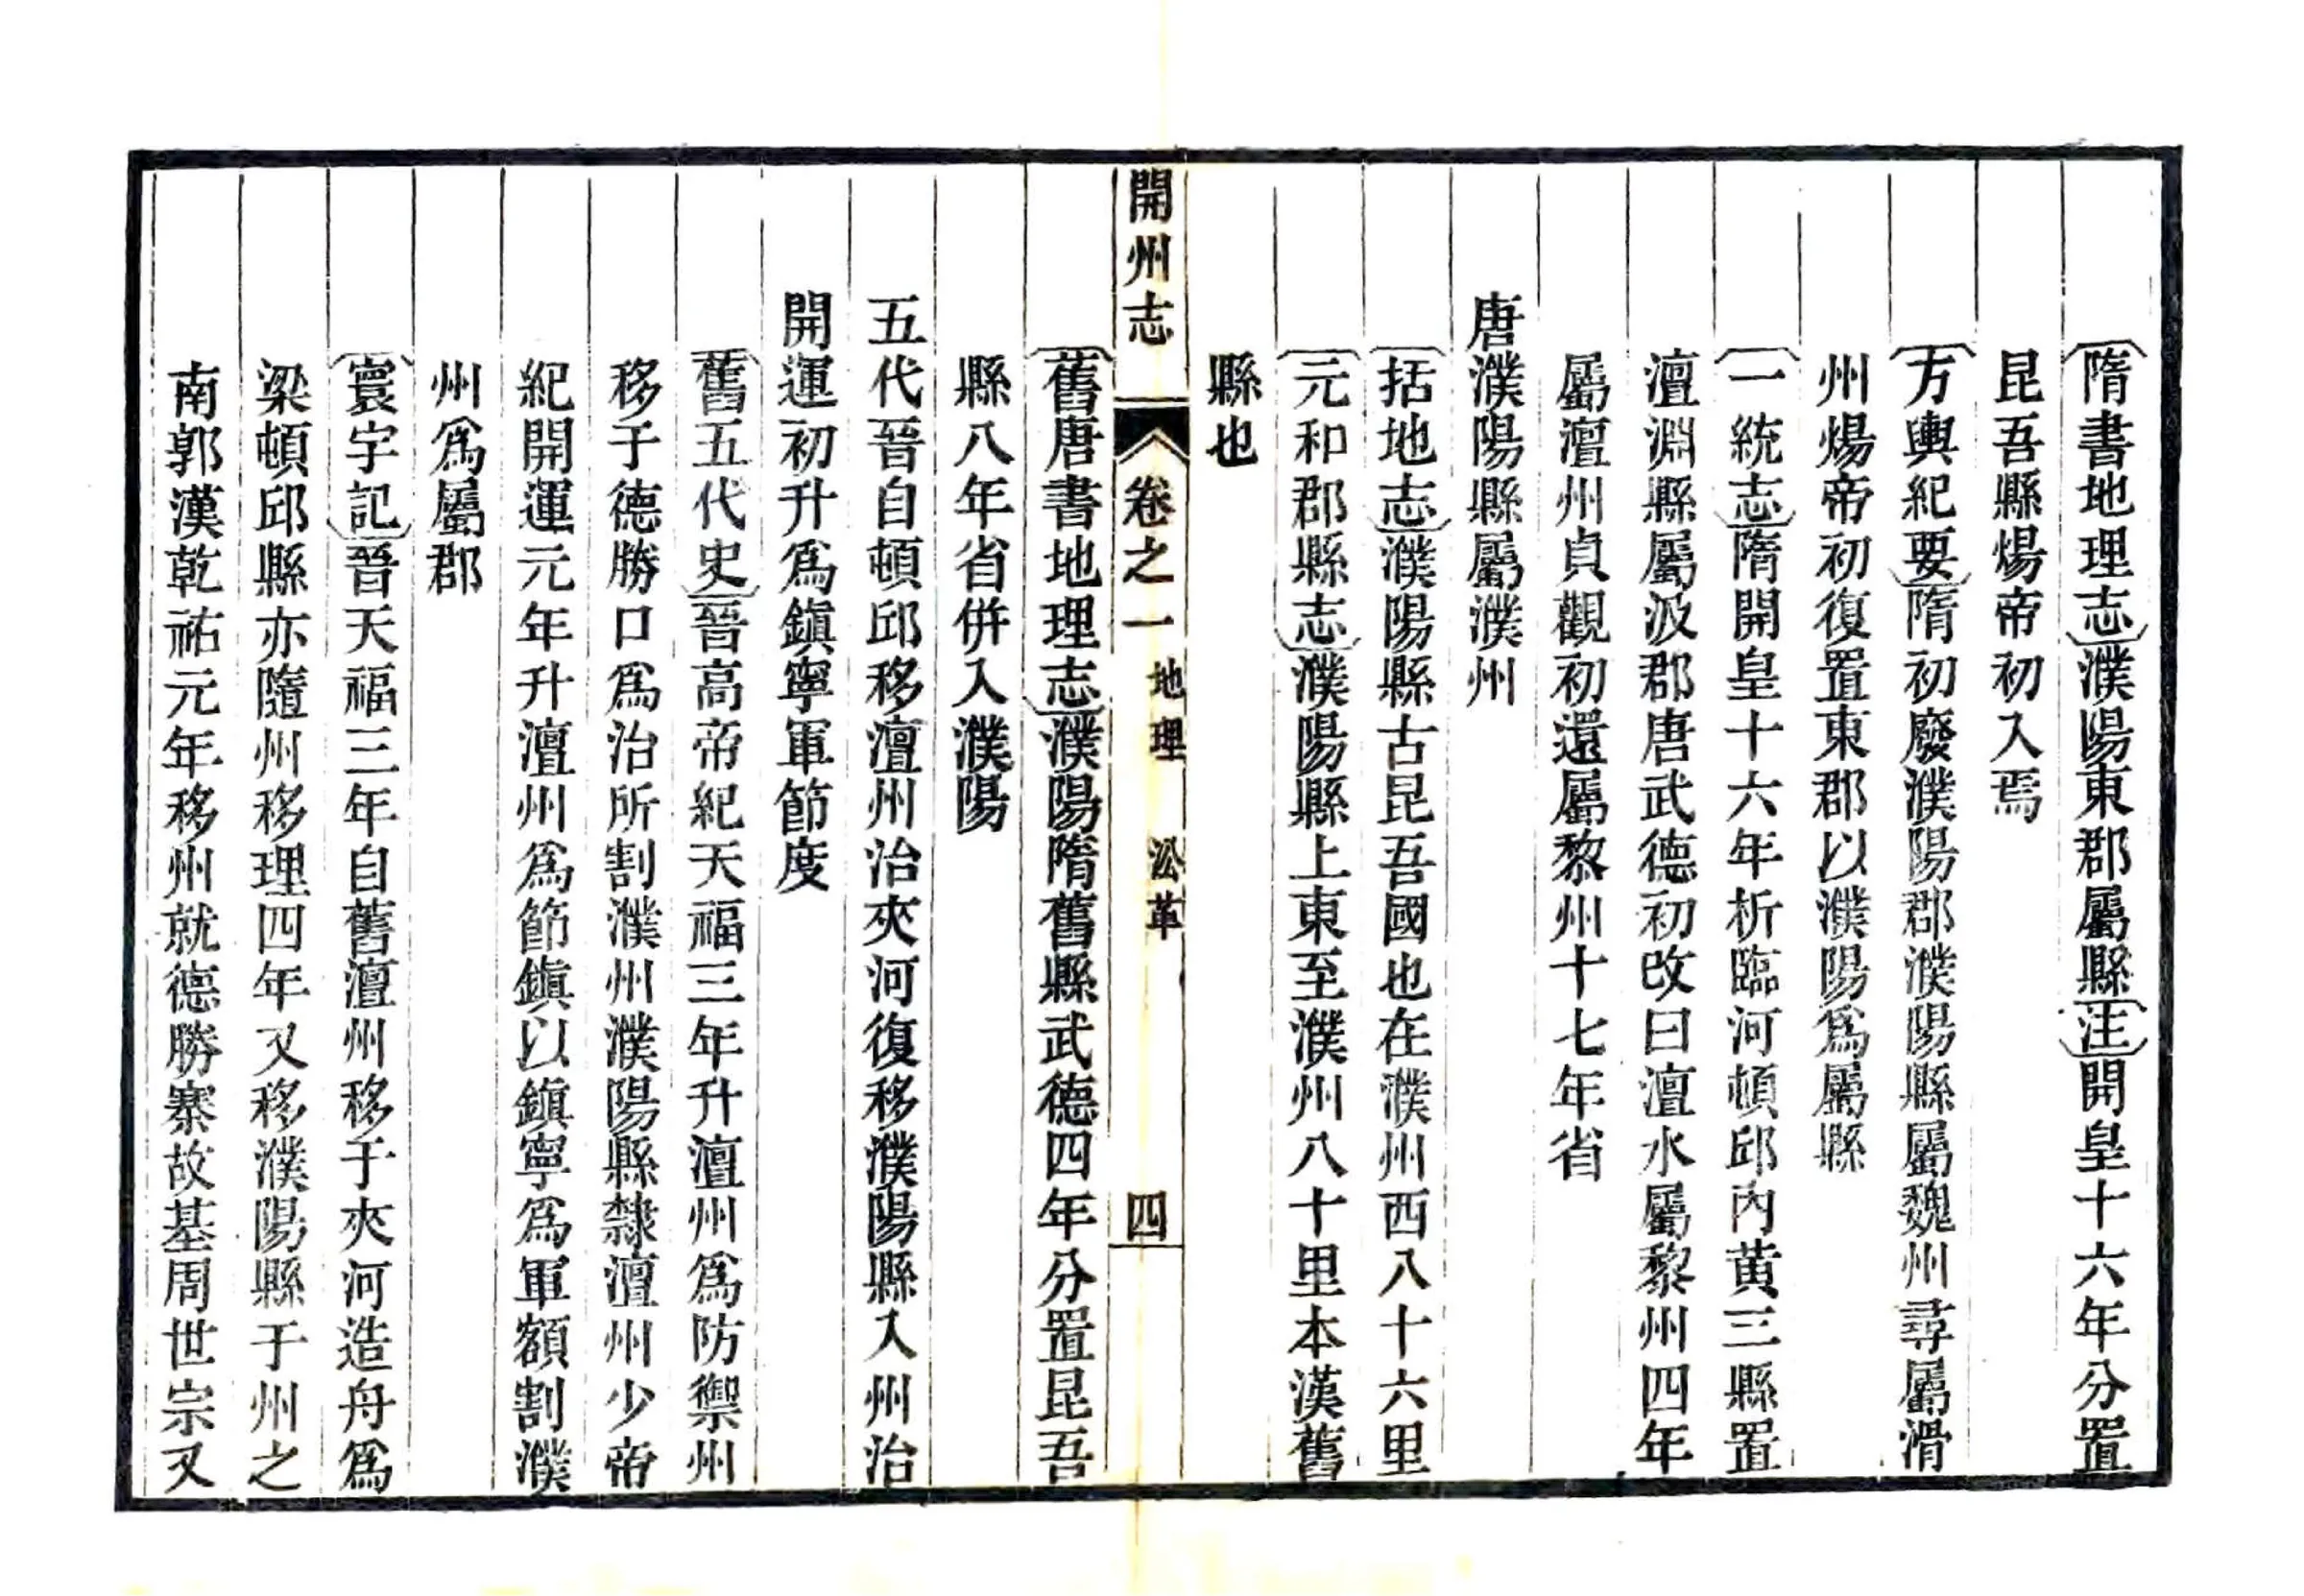 隋書地理志濮陽東郡屬縣注開皇十六年分置
昆吾縣煬帝初入焉
方輿紀要隋初廢濮陽郡濮陽縣屬魏州尋屬滑
州煬帝初復置東郡以濮陽爲屬縣
一統志隋開皇十六年析臨河頓邱內黃三縣置
澶淵縣屬汲郡唐武德初改曰澶水屬黎州四年
屬澶州貞觀初還屬黎州十七年省
唐濮陽縣屬濮州
括地志濮陽縣古昆吾國也在濮州西八十六里
元和郡縣志濮陽縣上東至濮州八十里本漢舊
縣也
開州志 卷之一 地理 沿革 四
舊唐書地理志濮陽隋舊縣武德四年分置昆吾
縣八年省併入濮陽
五代晉自頓邱移澶州治夾河復移濮陽縣入州治
開運初升爲鎭寧軍節度
舊五代史晉高帝紀天福三年升澶州爲防禦州
移于德勝口爲治所割濮州濮陽縣隸澶州少帝
紀開運元年升澶州爲節鎭以鎭寧爲軍額割濮
州爲屬郡
寰宇記晉天福三年自舊澶州移于夾河造舟爲
梁頓邱縣亦隨州移理四年又移濮陽縣于州之
南郭漢乾祐元年移州就德勝寨故基周世宗又